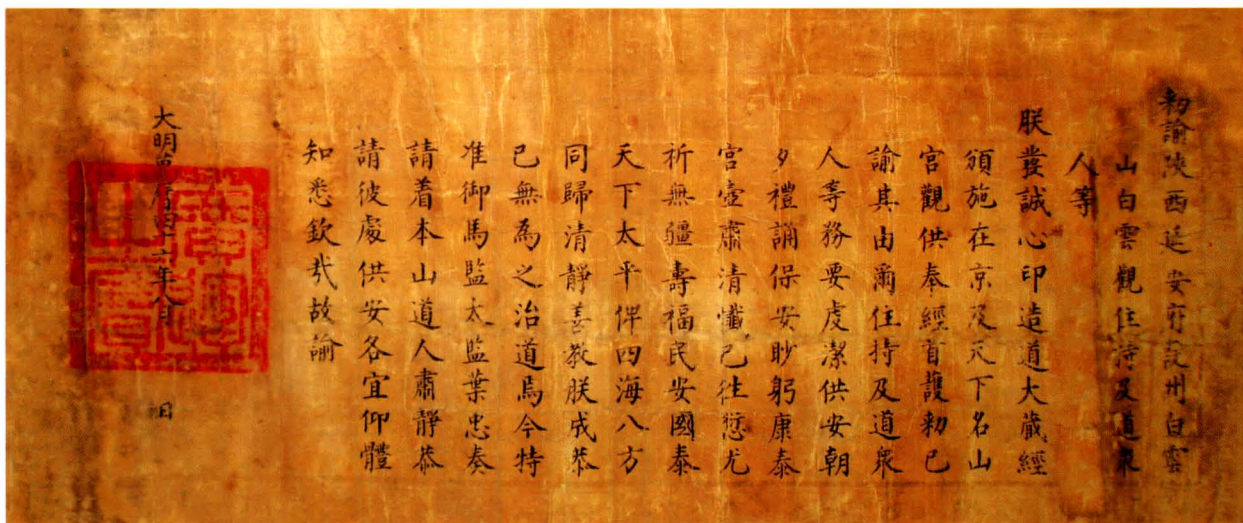 敕諭陝西延安府葭州白雲
山白雲觀住持及道衆
人等
朕發誠心印造道大藏經
頒施在京及天下名山
宮觀供奉經首護勑已
諭其由爾住持及道衆
人等務要虔潔供安朝
夕禮誦保安眇躬康泰
宮壼肅清懺已徃愆尤
祈無疆壽福民安國泰
天下太平俾四海八方
同歸清靜善教朕成恭
己無為之治道焉今特
准御馬監太監葉忠奏
請着本山道人肅靜恭
請彼處供安各宜仰體
知悉欽哉故諭
大明萬曆四十六年八月 日